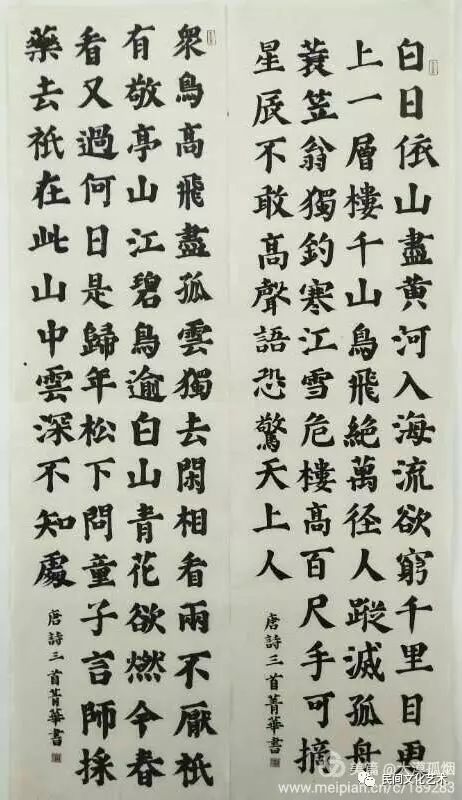 白日依山盡黄河入海流欲窮千里目更
上一層樓千山鳥飛絕萬径人蹤滅孤舟
蓑笠翁獨釣寒江雪危樓高百尺手可摘
星辰不敢高聲語恐驚天上人
唐詩三首菁華書
衆鳥高飛盡孤雲獨去閑相看兩不厭祇
有敬亭山江碧鳥逾白山青花欲燃今春
看又過何日是歸年松下問童子言師採
藥去祇在此山中雲深不知處
唐詩三首菁華書
美篇@大漠孤烟
www.meipian.me/c/189283
民间文化艺术